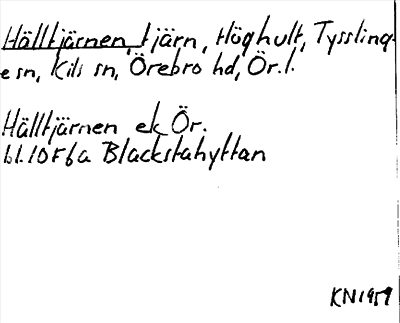 Hälltjärnen, tjärn, Höghult, Tyssling-
e sn, Kils sn, Örebro hd, Ör. l.
Hälltjärnen ek Ör.
bl. 10F6a Blackstahyttan
KN1959